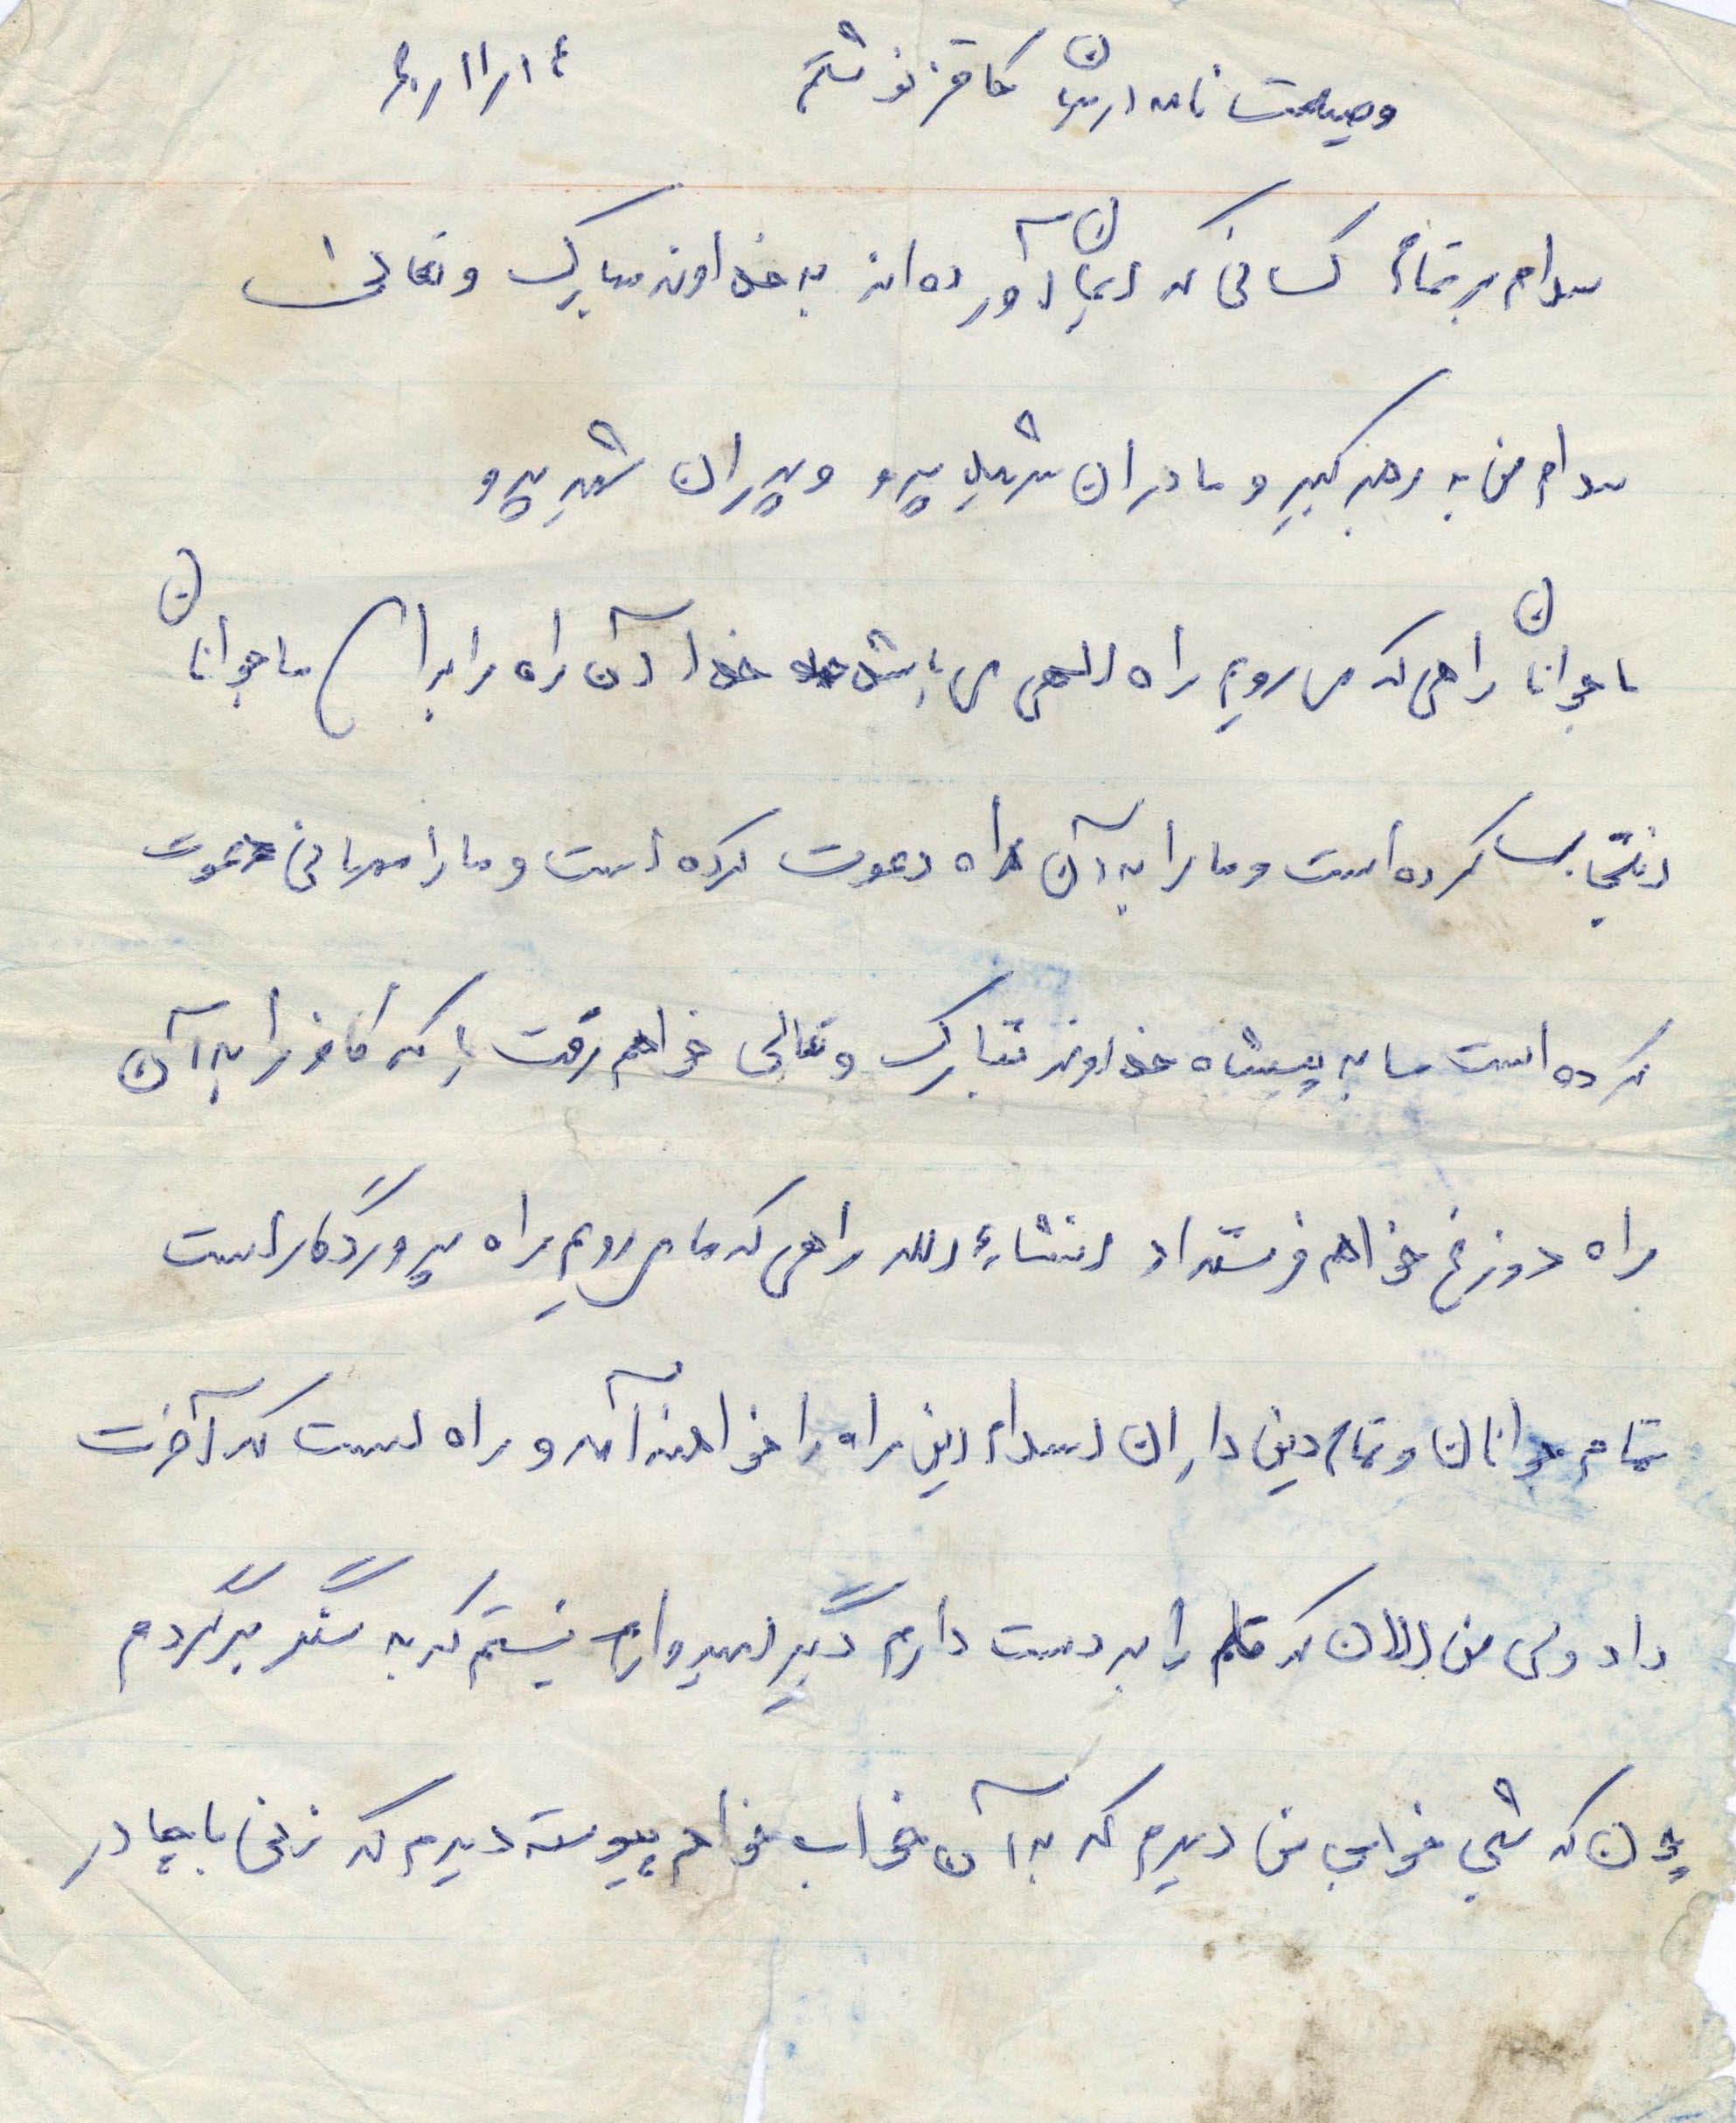 وصیت نامه در این کاقز نوشتم
سلام بر تمام کسانی که ایمان آورده‌اند به خداوند تبارک و تعالی
سلام من به رهبر کبیر و مادران شهید پرو و پدران شهید پرو
ما جوانان راهی که می رویم راه اللهی می باشد خدا آن راه را برای ما جوانان
انتخاب کرده است و ما را به آن راه دعوت کرده است و ما را مهمانی دعوت
کرده است ما به پیشاه خداوند تبارک و تعالی خواهم رفت با که کافر را به آن
راه دوزخ خواهم فرستداد انشاءالله راهی که ما می رویم راه پروردگار است
تمام جوانان و تمام دین داران اسلام این راه را خواهند آمد و راه است که آخرت
داد ولی من الان که قلم را به دست دارم دگیر امیدوارم نیستم که به سنگر برگردم
چون که شبی خوابی من دیدم که به آن خواب خواهم پیوست دیدم که زنی با چادر